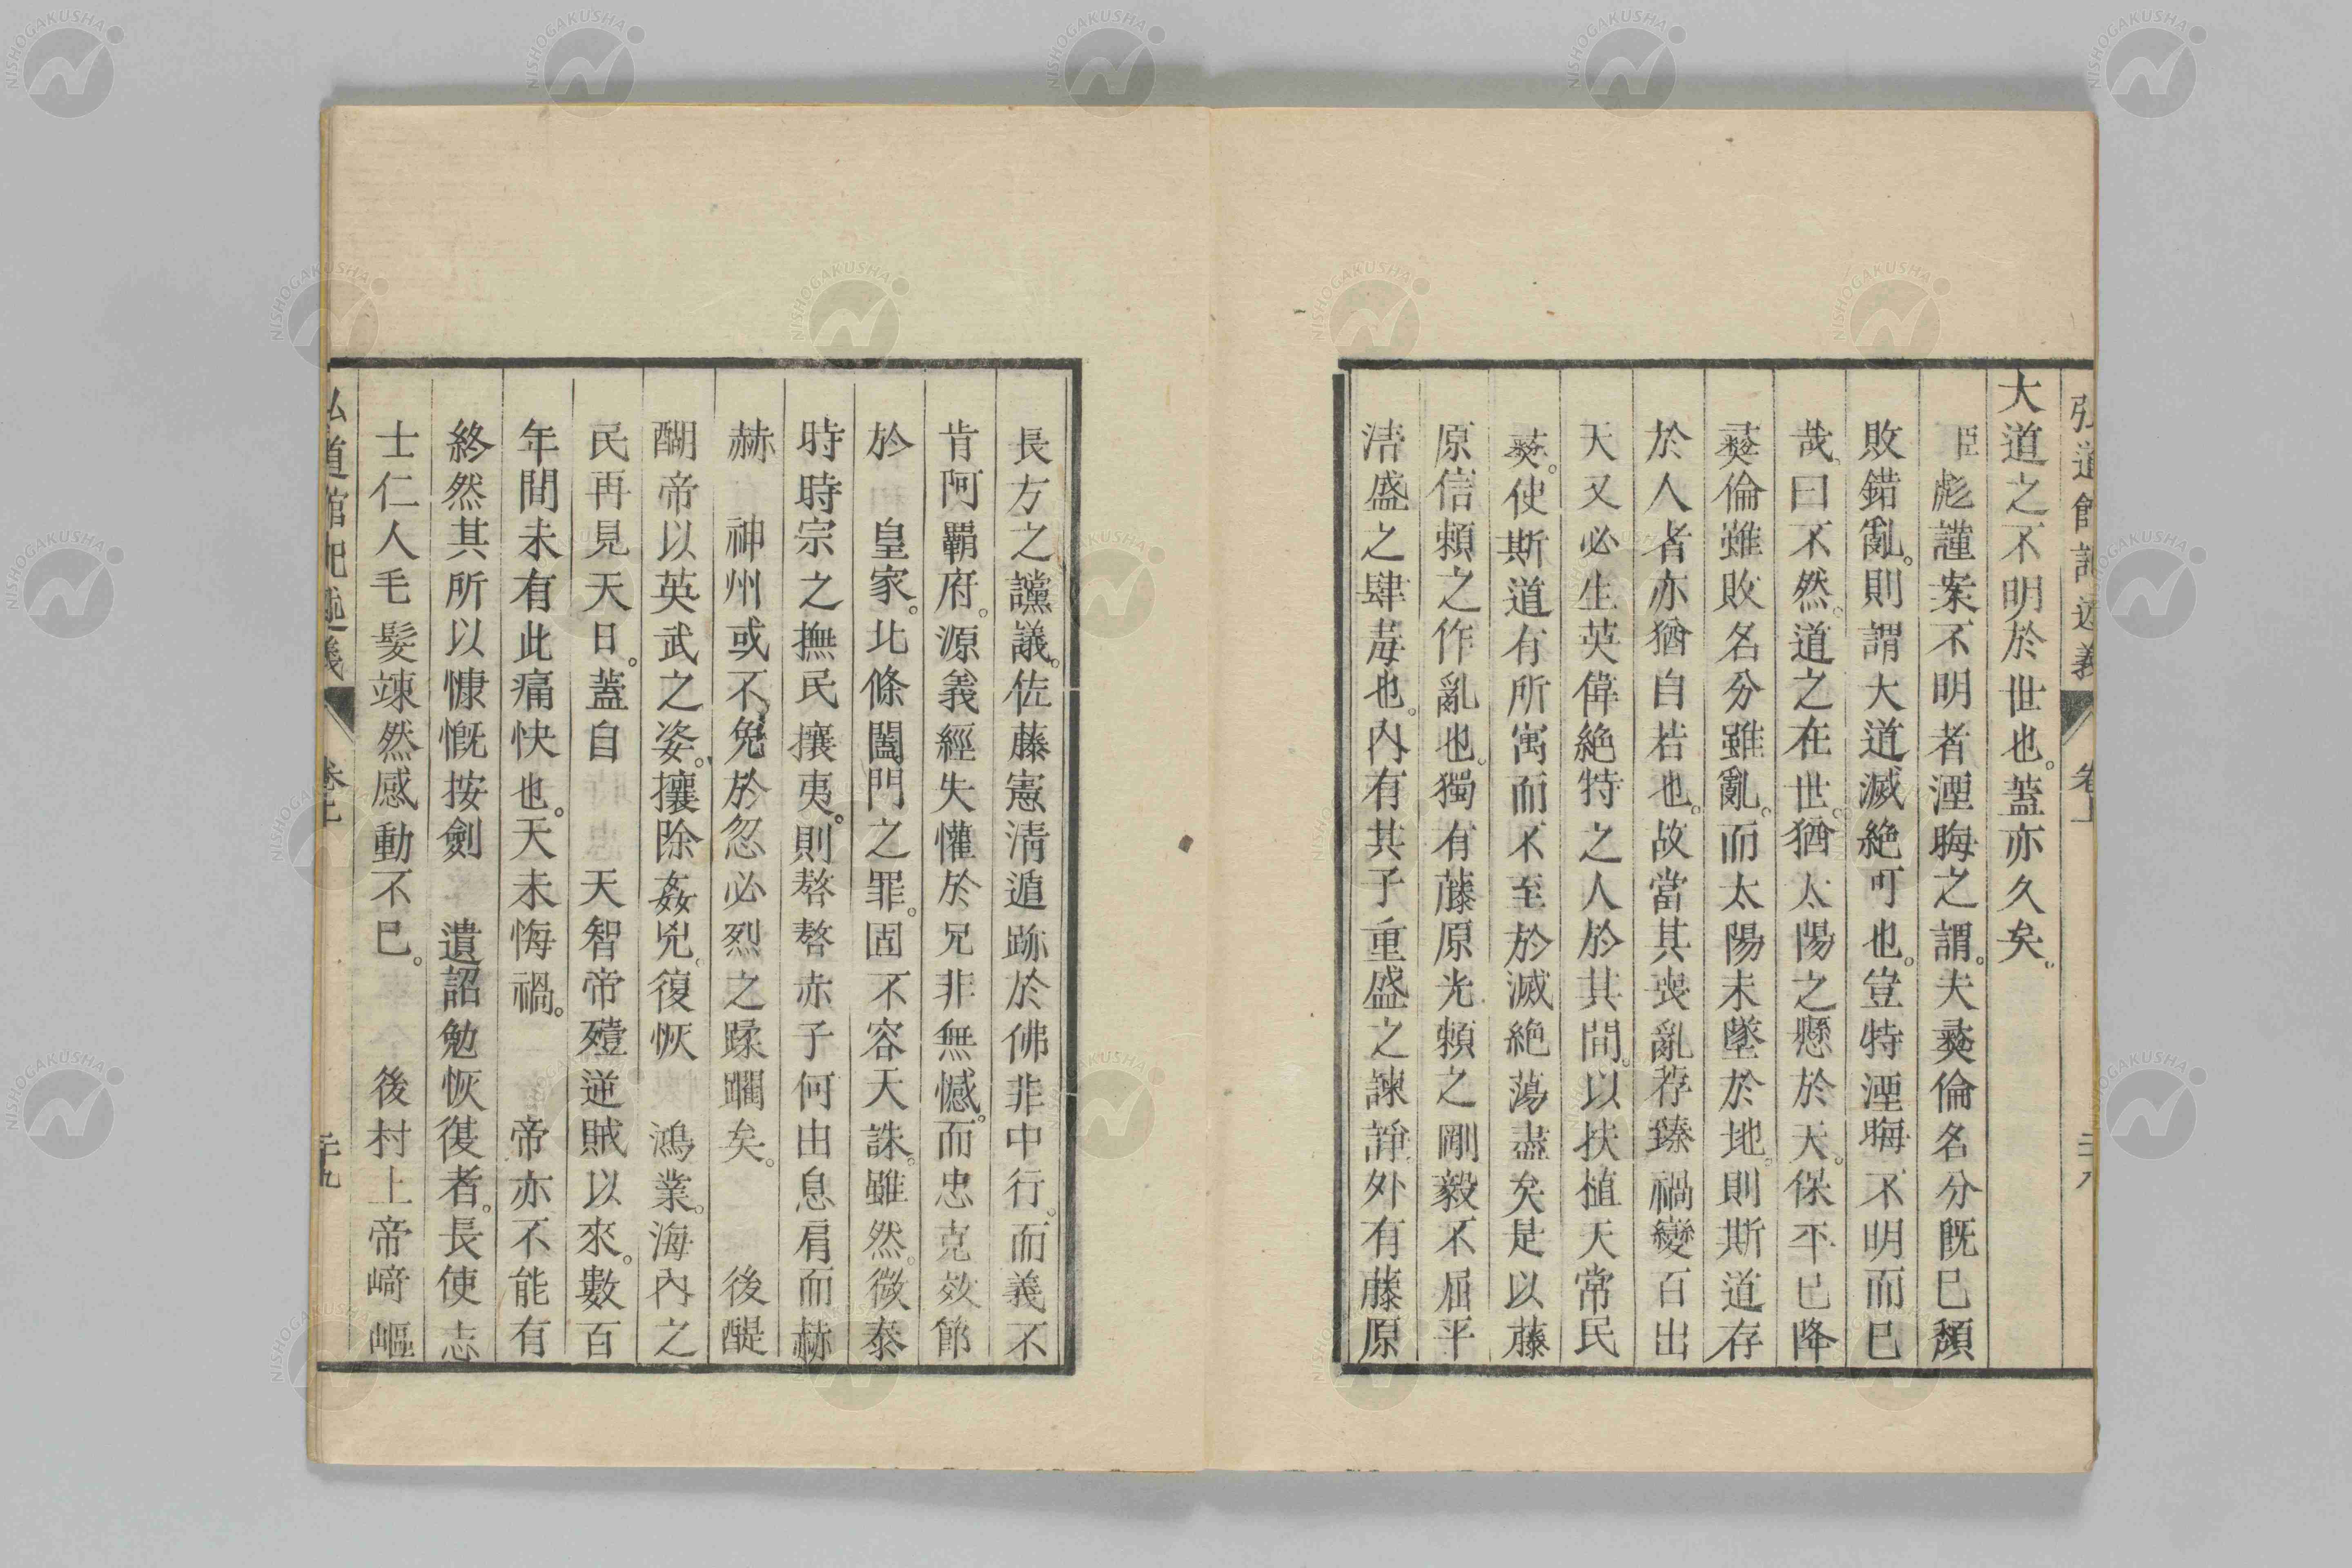 弘道館記述義 卷上
大道之不明於世也。蓋亦久矣。
臣彪謹案不明者湮晦之謂。夫彝倫名分旣已頹
敗錯亂。則謂大道滅絶可也。豈特湮晦不明而已
哉。曰不然。道之在世。猶太陽之懸於天。保平已降
彝倫雖敗名分雖亂。而太陽未墜於地。則斯道存
於人者亦猶自若也。故當其喪亂荐臻禍變百出
天又必生英偉絶特之人於其間。以扶植天常民
彝。使斯道有所寓而不至於滅絶蕩盡矣是以藤
原信賴之作亂也。獨有藤原光賴之剛毅不屈平
淸盛之肆毒也。內有其子重盛之諫諍外有藤原
長方之讜議。佐藤憲淸遁跡於佛非中行。而義不
肯阿覇府。源義經失懽於兄非無憾。而忠克效節
於 皇家。北條闔門之罪。固不容天誅。雖然。微泰
時時宗之撫民攘夷。則嗸嗸赤子何由息肩而赫
赫 神州或不免於忽必烈之蹂躙矣。 後醍
醐帝以英武之姿。攘除姦兇。復恢 鴻業。海內之
民再見天日。蓋自 天智帝殪逆賊以來。數百
年間未有此痛快也。天未悔禍。 帝亦不能有
終然其所以慷慨按劍 遺詔勉恢復者。長使志
士仁人毛髮竦然感動不已。 後村上帝崎嶇
弘道館記述義 卷上 二十九